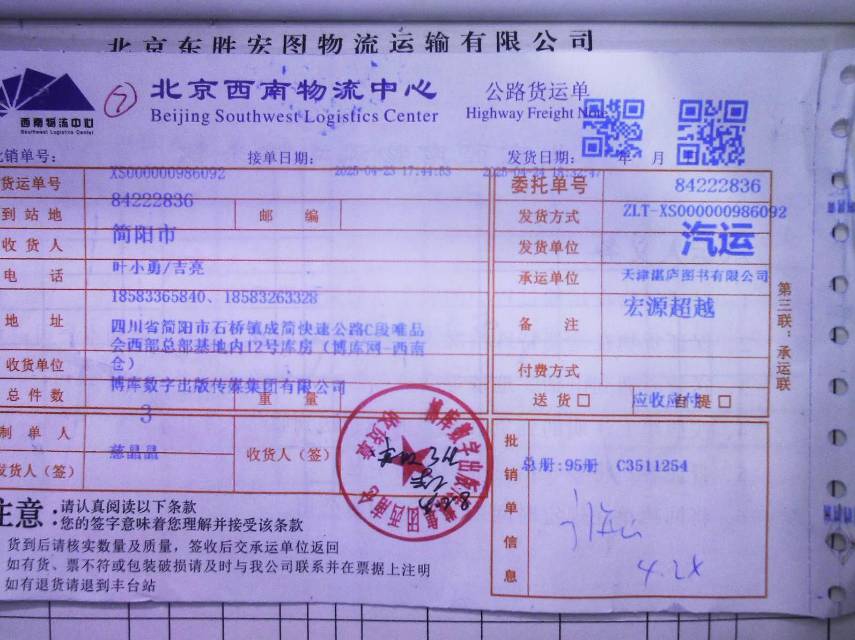 北京东胜宏图物流运输有限公司
西南物流中心
Southwest Logistics Center
7
北京西南物流中心
Beijing Southwest Logistics Center
公路货运单
Highway Freight Note
批销单号:
XS000000986092
接单日期:
2025-04-23 17:44:53
发货日期:
年 月
2025-04-24 18:32:47
货运单号
84222836
委托单号
84222836
到站地
简阳市
邮 编
发货方式
ZLT-XS000000986092
汽运
收货人
叶小勇/吉亮
发货单位
天津湛庐图书有限公司
电 话
18583365840、18583263328
承运单位
宏源超越
地 址
四川省简阳市石桥镇成简快速公路C段唯品
会西部总部基地内12号库房(博库网-西南
仓)
备 注
收货单位
博库数字出版传媒集团有限公司
付费方式
应收应付
总件数
3
重 量
送货□
自提□
制单人
慈晶晶
发货人(签)
收货人(签)
收货章
批销单信息
总册:95册 C3511254
4.2X
第三联:承运联
注意:
请认真阅读以下条款
您的签字意味着您理解并接受该条款
货到后请核实数量及质量,签收后交承运单位返回
如有货、票不符或包装破损请及时与我公司联系并在票据上注明
如有退货请退到丰台站